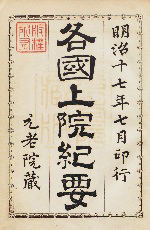 明治十七年七月印行
各國上院紀要
元老院藏